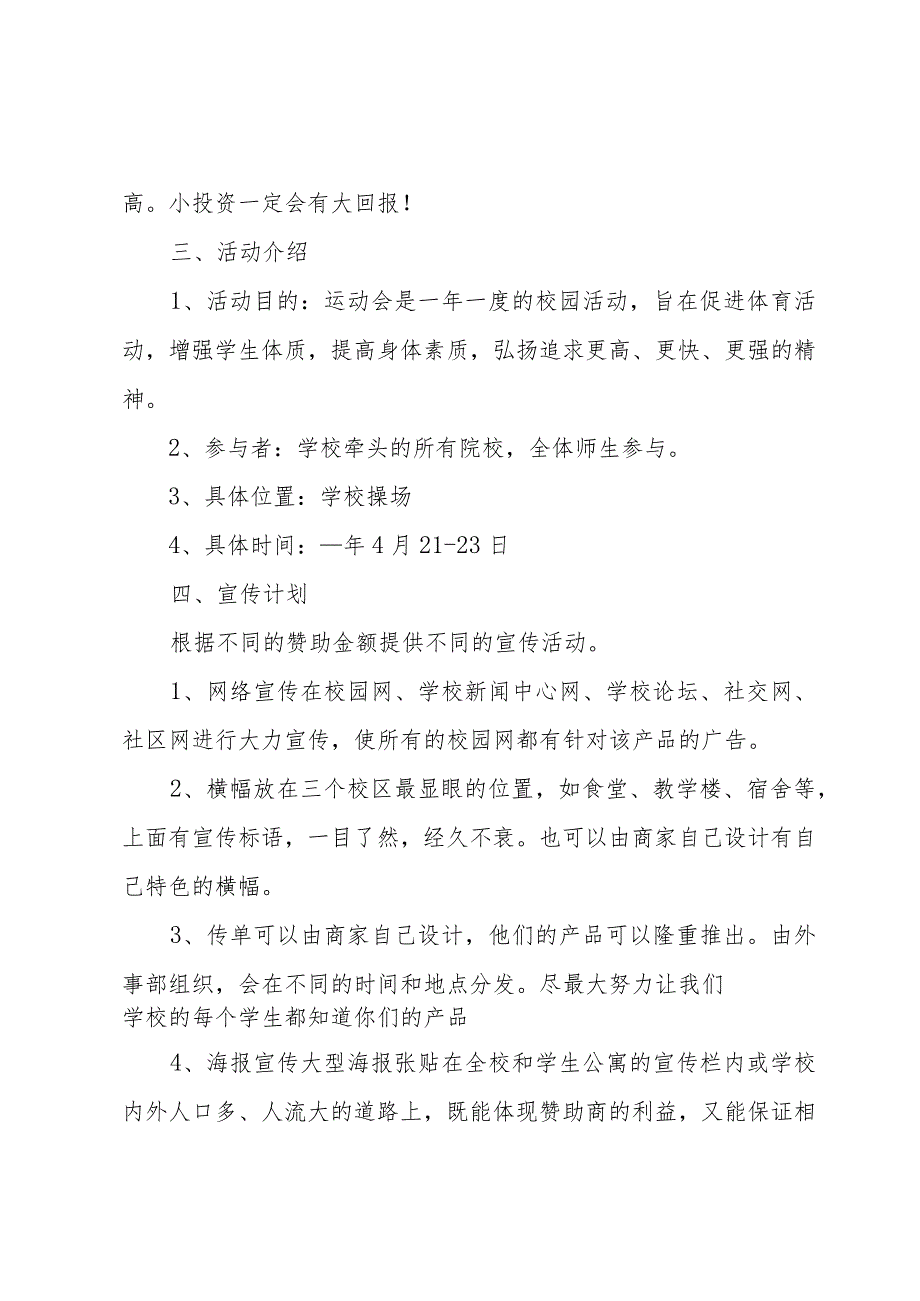 高。小投资一定会有大回报！
三、活动介绍
1、活动目的：运动会是一年一度的校园活动，旨在促进体育活
动，增强学生体质，提高身体素质，弘扬追求更高、更快、更强的精
神。
2、参与者：学校牵头的所有院校，全体师生参与。
3、具体位置：学校操场
4、具体时间：—年4月21-23日
四、宣传计划
根据不同的赞助金额提供不同的宣传活动。
1、网络宣传在校园网、学校新闻中心网、学校论坛、社交网、
社区网进行大力宣传，使所有的校园网都有针对该产品的广告。
2、横幅放在三个校区最显眼的位置，如食堂、教学楼、宿舍等，
上面有宣传标语，一目了然，经久不衰。也可以由商家自己设计有自
己特色的横幅。
3、传单可以由商家自己设计，他们的产品可以隆重推出。由外
事部组织，会在不同的时间和地点分发。尽最大努力让我们
学校的每个学生都知道你们的产品
4、海报宣传大型海报张贴在全校和学生公寓的宣传栏内或学校
内外人口多、人流大的道路上，既能体现赞助商的利益，又能保证相